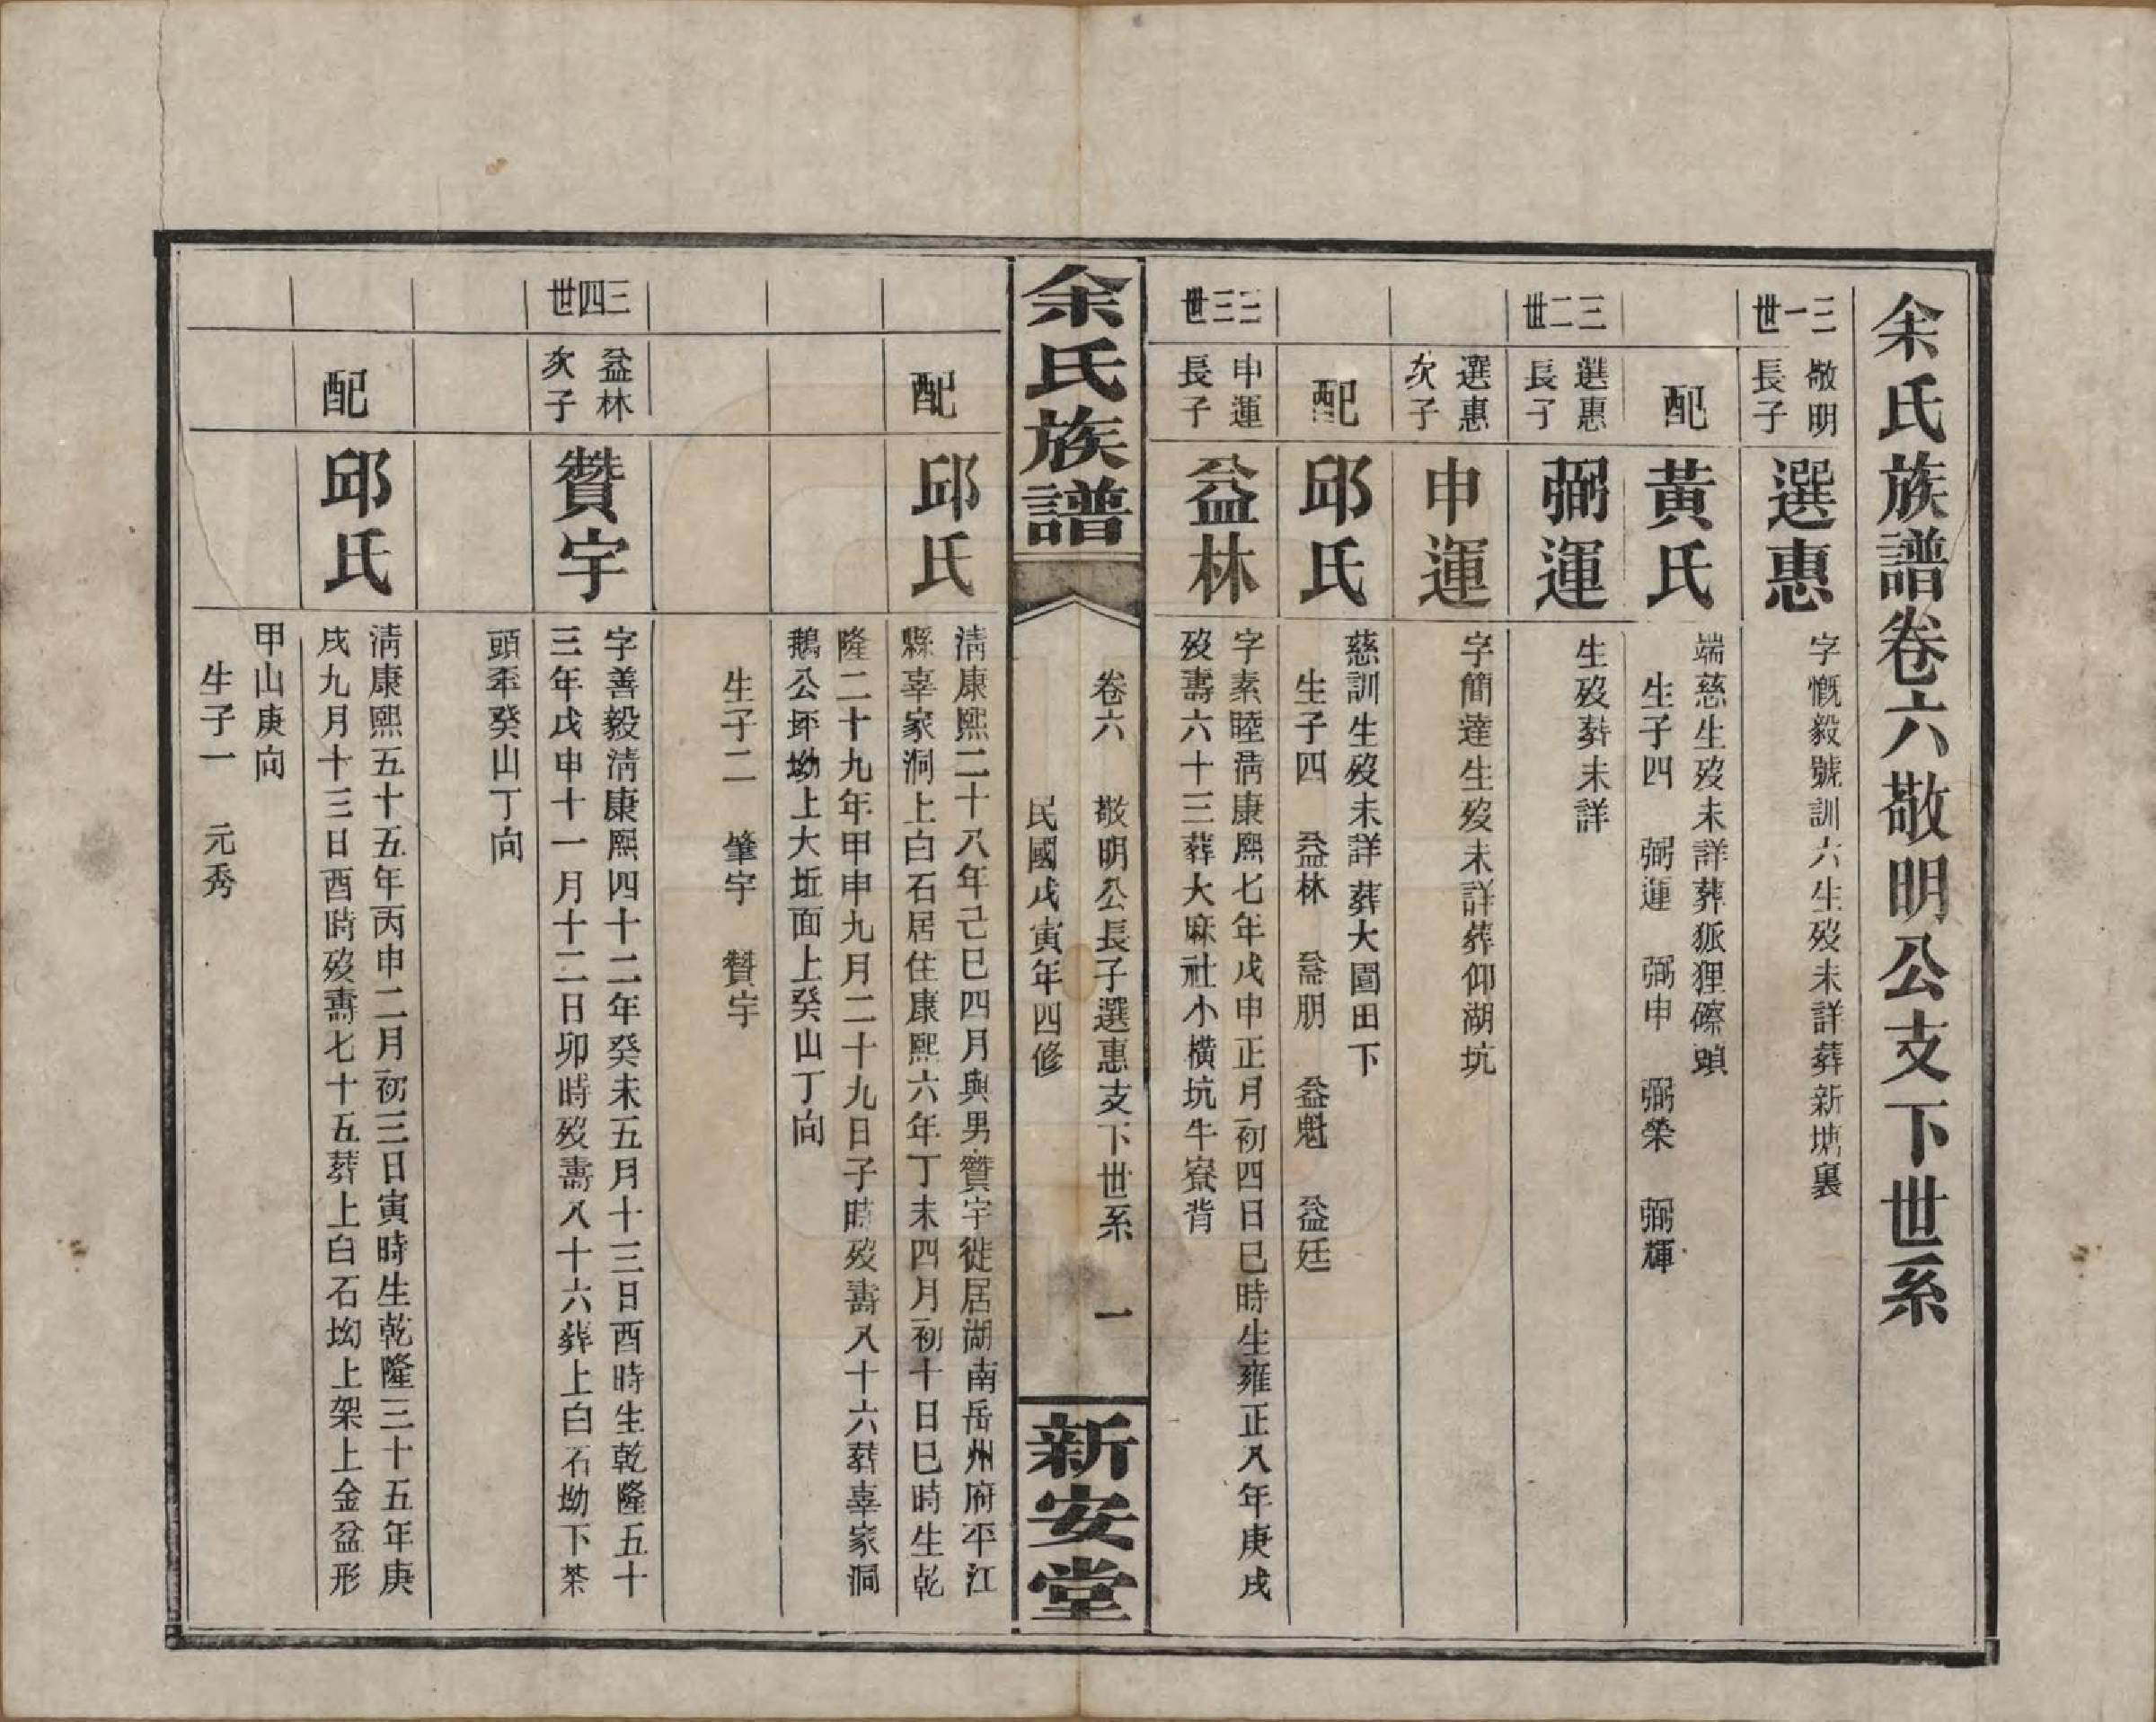 余氏族譜卷六敬明公支下世系
三一世
敬明
長子
選惠
字慨毅號訓六生歿未詳葬新塘裏
配
黃氏
端慈生歿未詳葬狐狸磜頭
生子四 弼運 弼申 弼榮 弼輝
三二世
選惠
長子
弼運
生歿葬未詳
選惠
次子
申運
字簡達生歿未詳葬仰湖坑
配
邱氏
慈訓生歿未詳葬大園田下
生子四 益林 益朋 益魁 益廷
三三世
申運
長子
益林
字素睦淸康熙七年戊申正月初四日巳時生雍正八年庚戌
歿壽六十三葬大麻社小橫坑牛寮背
余氏族譜
卷六 敬明公長子選惠支下世系 一
民國戊寅年四修
新安堂
配
邱氏
淸康熙二十八年己巳四月與男贊宇徙居湖南岳州府平江
縣辜家洞上白石居住康熙六年丁未四月初十日巳時生乾
隆二十九年甲申九月二十九日子時歿壽八十六葬辜家洞
鵝公坪坳上大坵面上癸山丁向
生子二 肇宇 贊宇
三四世
益林
次子
贊宇
字善毅淸康熙四十二年癸未五月十三日酉時生乾隆五十
三年戊申十一月十二日卯時歿壽八十六葬上白石坳下茶
頭坪癸山丁向
配
邱氏
淸康熙五十五年丙申二月初三日寅時生乾隆三十五年庚
戌九月十三日酉時歿壽七十五葬上白石坳上架上金盆形
甲山庚向
生子一 元秀